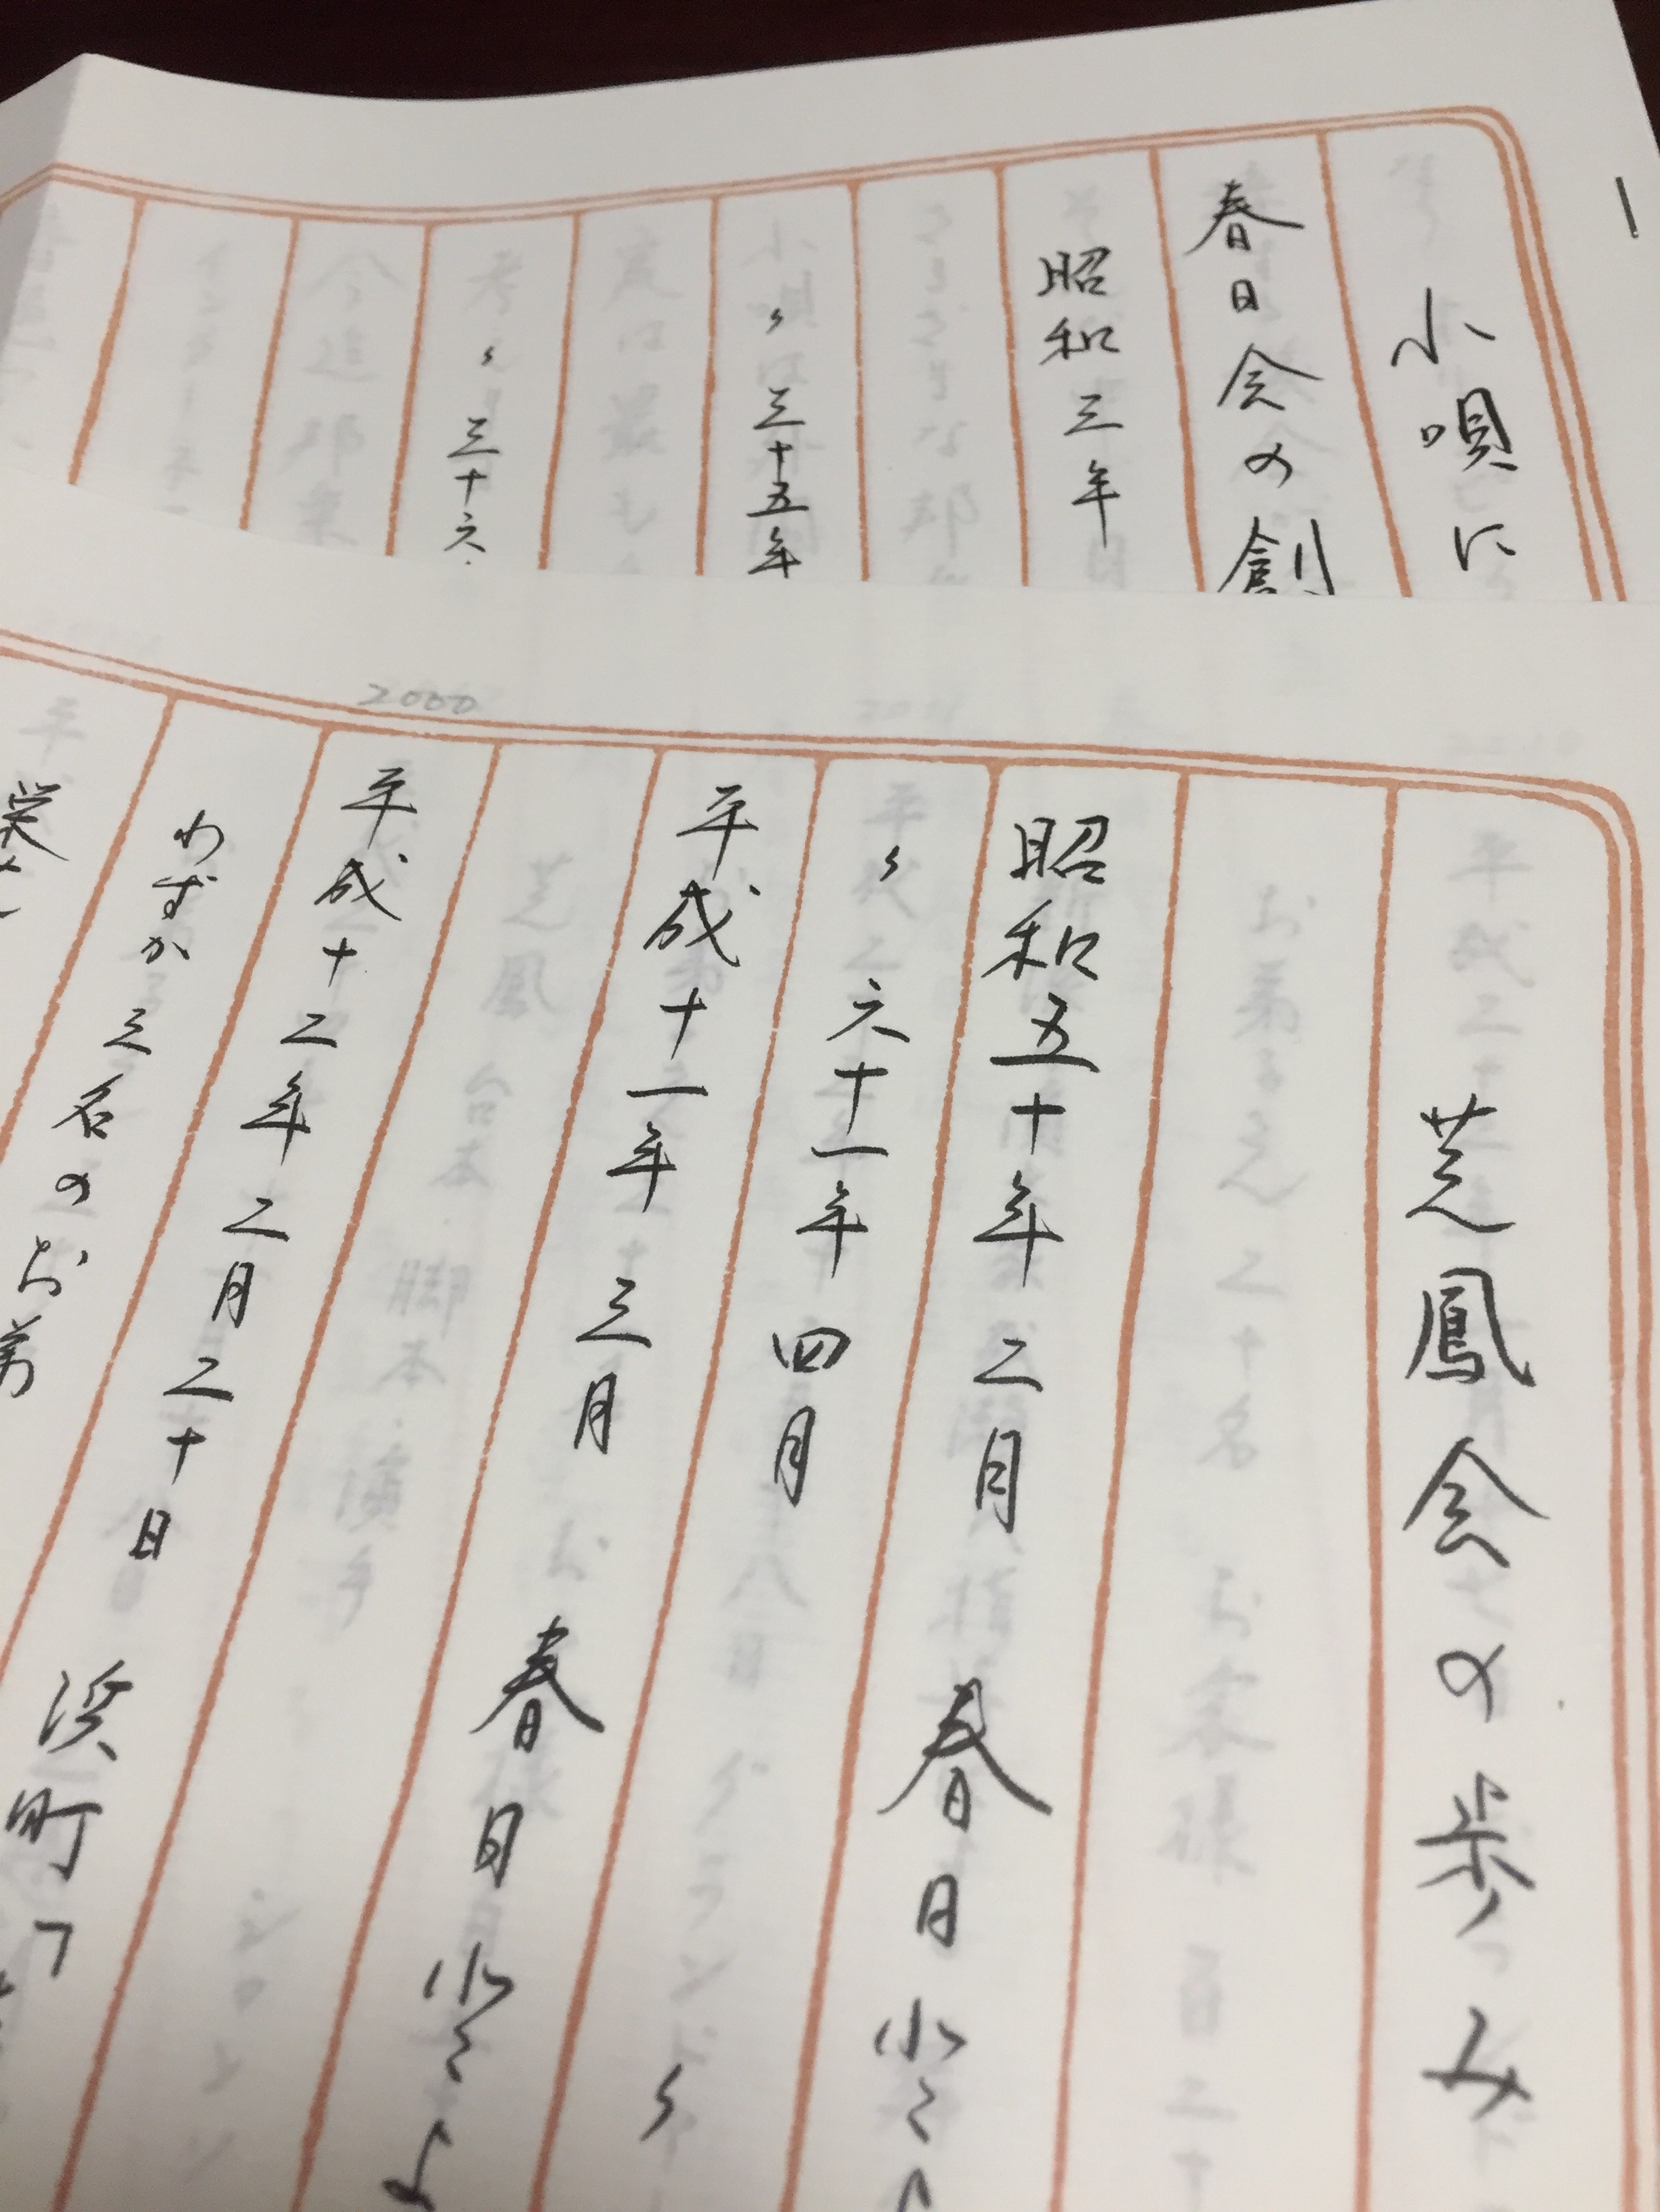 小唄に
春日会の創
昭和三年
〃 三十五年
〃 三十六
2000
芝鳳会の歩み
昭和五十年二月 春日小
〃 六十一年四月 〃
平成十一年三月 春日小
平成十二年二月二十日 浜町
わずか三名のお弟